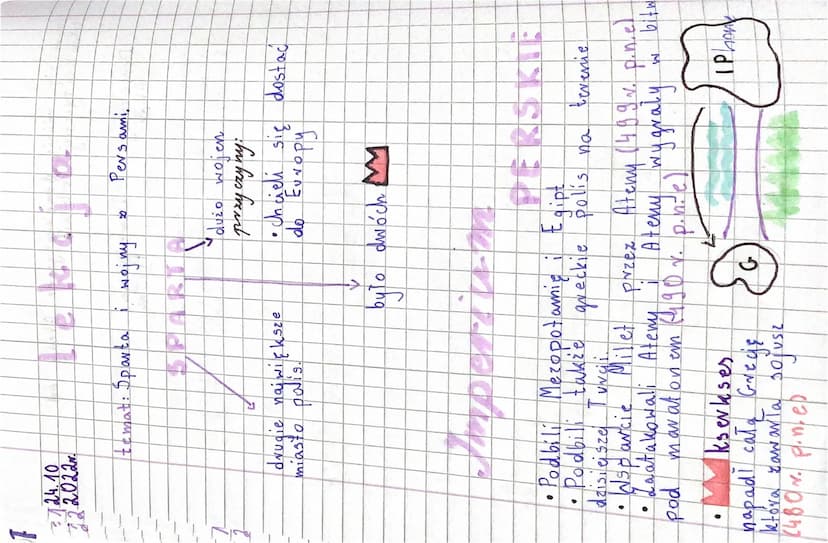 Lekcja
24.10
2022r.
temat: Sparta i wojny z Persami.
SPARTA
drugie największe
miasto polis.
dużo wojen
przyczyny:
• Chcieli się dostać
do Europy
było dwóch
Imperium PERSKIE:
• Podbili Mezopotamię i Egipt
• Podbili także greckie polis na terenie
dzisiejszej Turcji.
• Wsparcie Milet przez Ateny (499 r. p.n.e)
• Zaatakowali Ateny i Ateny wygrały w bitw
pod maratonem (490 r. p.n.e)
G
IP
• kserkses
napadł całą Grecję
która zawarła sojusz
(480 r. p.n.e)